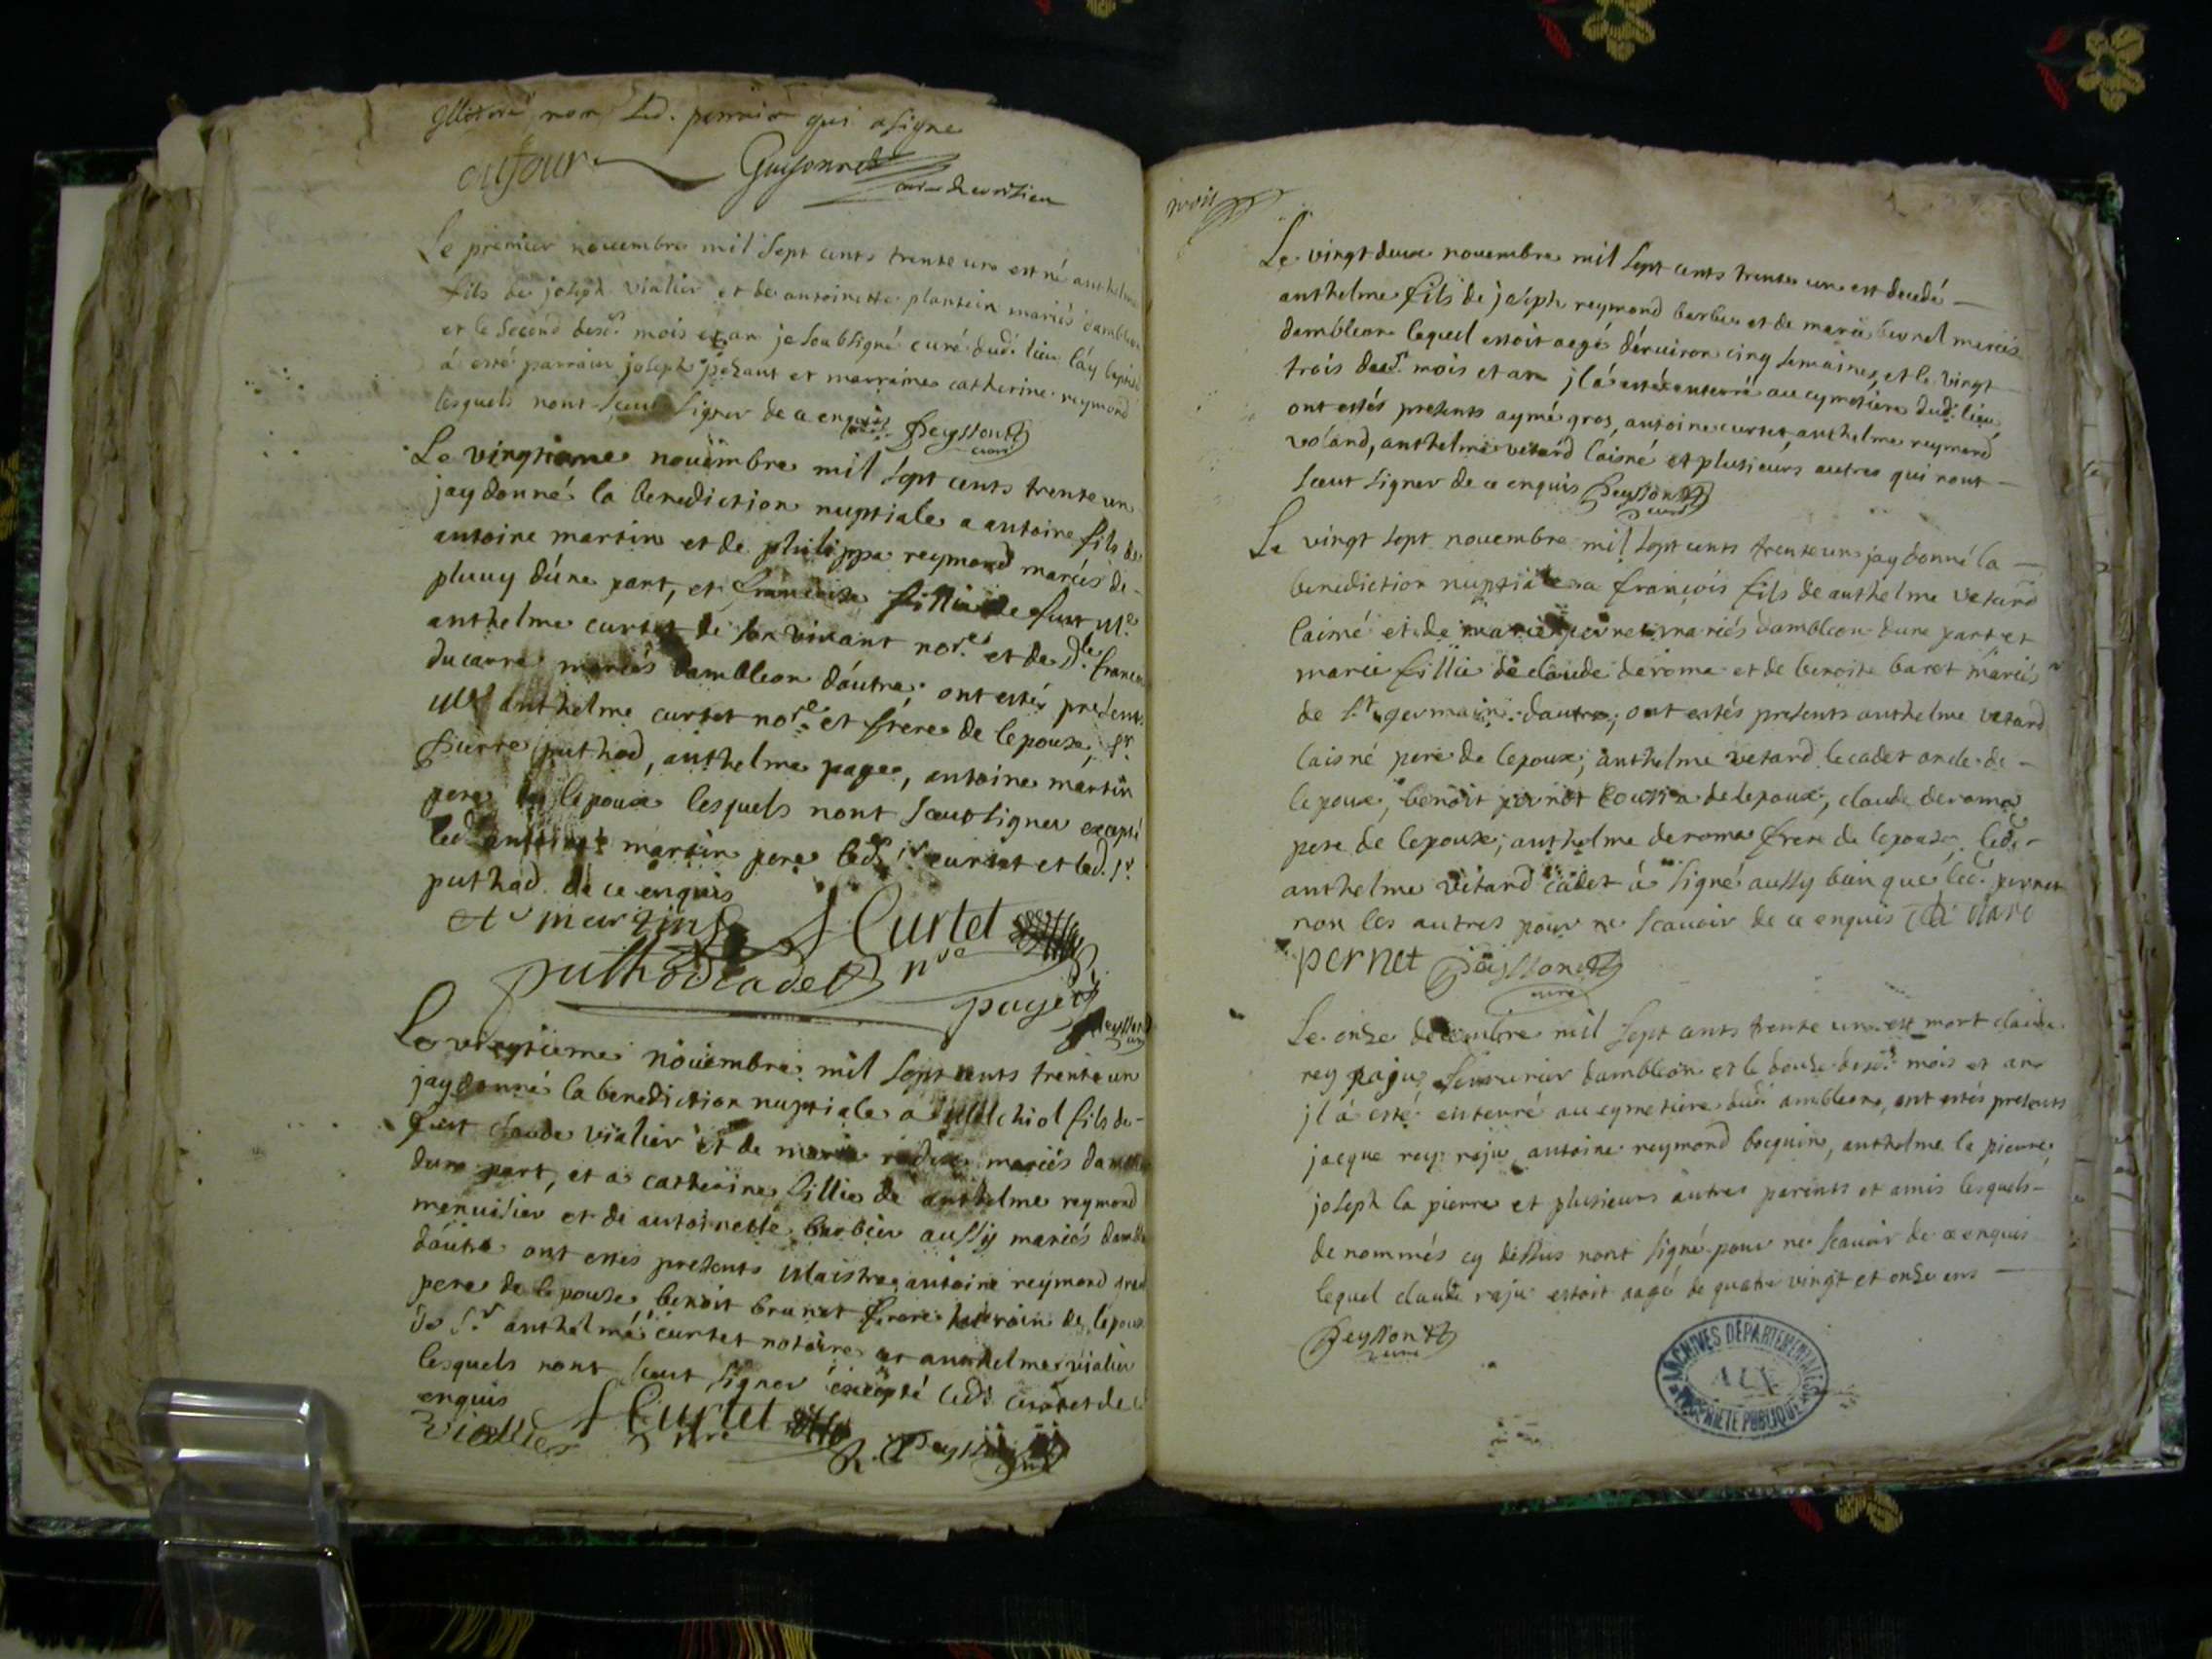 illiteré non led. perrier qui a signe
dufour Guigonnet
curé de contrieu
Le premier novembre mil sept cents trente un est né anthelme
fils de joseph vialier et de antoinette plantein mariés dambleon
et le second desd. mois et an je soubsigné curé dud. lieu láy baptisé
á esté parrain joseph pezant et marraine catherine reymond
lesquels nont sceu signer de ce enquis Peysson
curé
Le vingtieme novembre mil sept cents trente un
jay donné la benediction nuptiale a antoine fils de
antoine martin et de philippa reymond mariés de
pluvy dúne part, et francoise fillie de fut Me.
anthelme curtet de son vivant nore. et de Dle. francoise
ducarre mariés dambleon dáutre; ont estés presents
Me anthelme curtet nore. et frère de lepouse, Sr.
pierre puthod, anthelme page, antoine martin
pere de lepoux lesquels nont sceut signer excepté
led. antoine martin pere led. Sr curtet et led. Sr.
puthod de ce enquis
A martin A Curtet
puthod cadet nre
paget
Peysson
curé
Le vingtieme novembre mil sept cents trente un
jay donné la benediction nuptiale á Melchiol fils de
fut claude vialier et de marie mariés dambleon
dune part, et a catherine fillie de anthelme reymond
menuisier et de antoinette barbier aussy mariés dambleon
dáutre ont estés presents Maistre antoine reymond grand
pere de lepouse, benoit brunet frere uterin de lepoux
de Sr anthelme curtet notaire et anthelme vialier
lesquels nont sceut signer excepté led. curtet de ce
enquis
viallier A Curtet
nre
R. Peysson
curé
Le vingt deux novembre mil sept cents trente un est decedé
anthelme fils de joseph reymond barbier et de marie mariés
dambleon lequel estoit aagé dénviron cinq semaines, et le vingt
trois desd. mois et an jl á esté enterré au cymetiere dud. lieu
ont estés presents aymé gros, antoine curtet, anthelme reymond
voland, anthelme vetard láisné et plusieurs autres qui nont
sceut signer de ce enquis Peysson
curé
Le vingt sept novembre mil sept cents trente un jay donné la
benediction nuptiale a françois fils de anthelme vetard
lainé et de marie pernet mariés dambleon dune part et
marie fillie de claude deroma et de benoite baret mariés
de St germain dautre; ont estés presents anthelme vetard
laisné pere de lepoux; anthelme vetard le cadet oncle de
lepoux, benoit pernet cousin de lepoux, claude deroma
pere de lepouse; anthelme deroma frere de lepouse, led.
anthelme vetard cadet á signé aussy bien que led. pernet
non les autres pour ne scavoir de ce enquis
pernet Peysson
curé
Le onze decembre mil sept cents trente un est mort claude
rey rajus dambleon et le douze desd. mois et an
jl á esté enterré au cymetiere dud. ambleon, ont estés presents
jacque rey raju, antoine reymond bocquin, anthelme la pierre,
joseph la pierre et plusieurs autres parents et amis lesquels
denommés cy dessus nont signé pour ne scavoir de ce enquis
lequel claude raju estoit aagé de quatre vingt et onze ans
Peysson
curé
ARCHIVES DEPARTEMENTALES
AIN
PROPRIETE PUBLIQUE